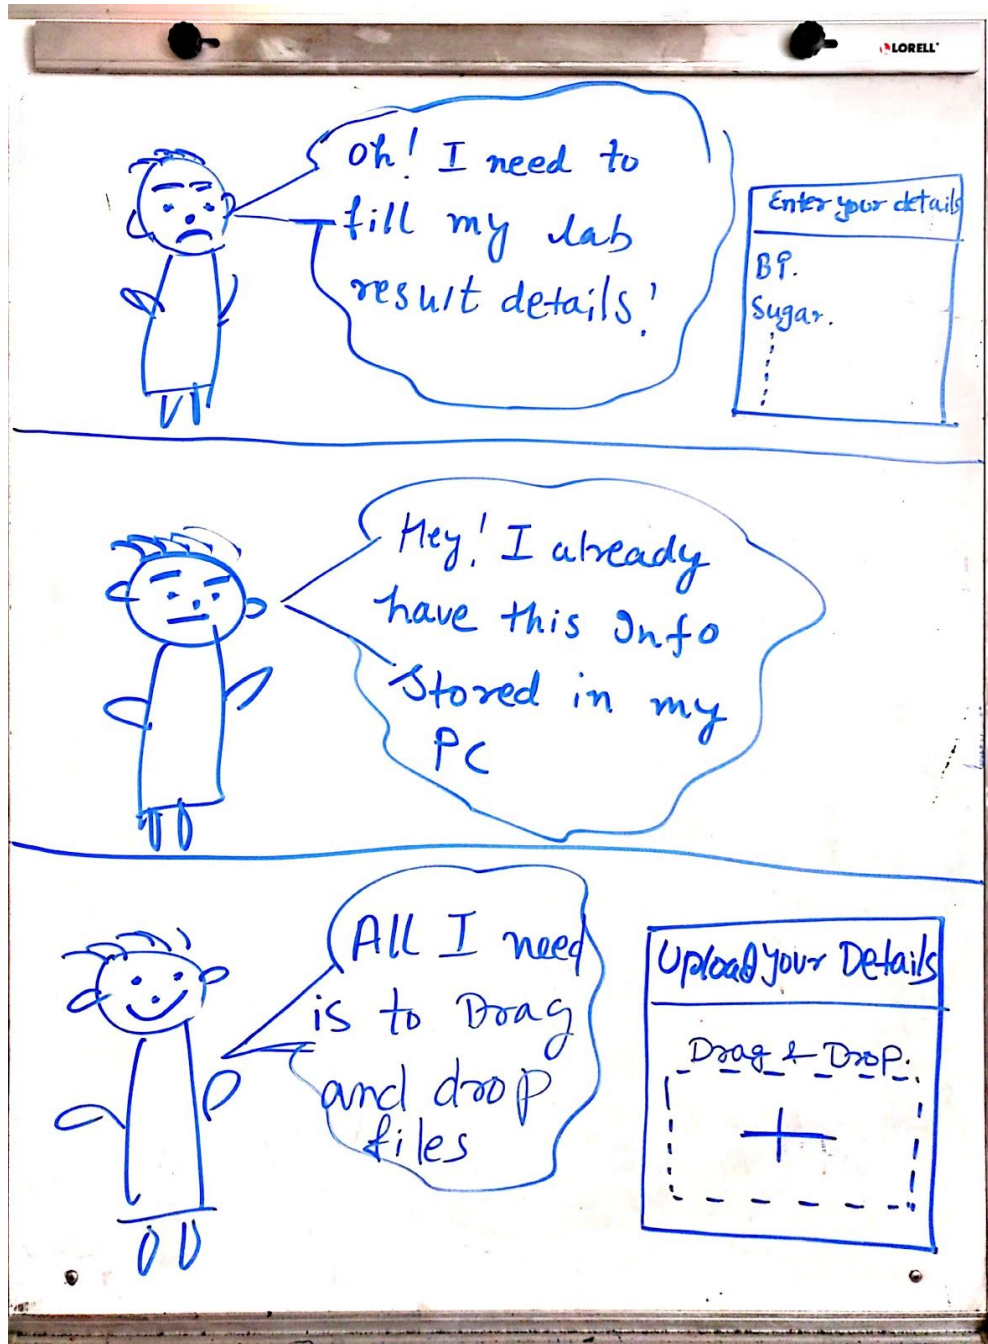 LORELL
Oh! I need to
fill my lab
result details!
Enter your details
BP.
Sugar.
Hey! I already
have this Info
Stored in my
PC
All I need
is to Drag
and drop
files
Upload Your Details
Drag & Drop.